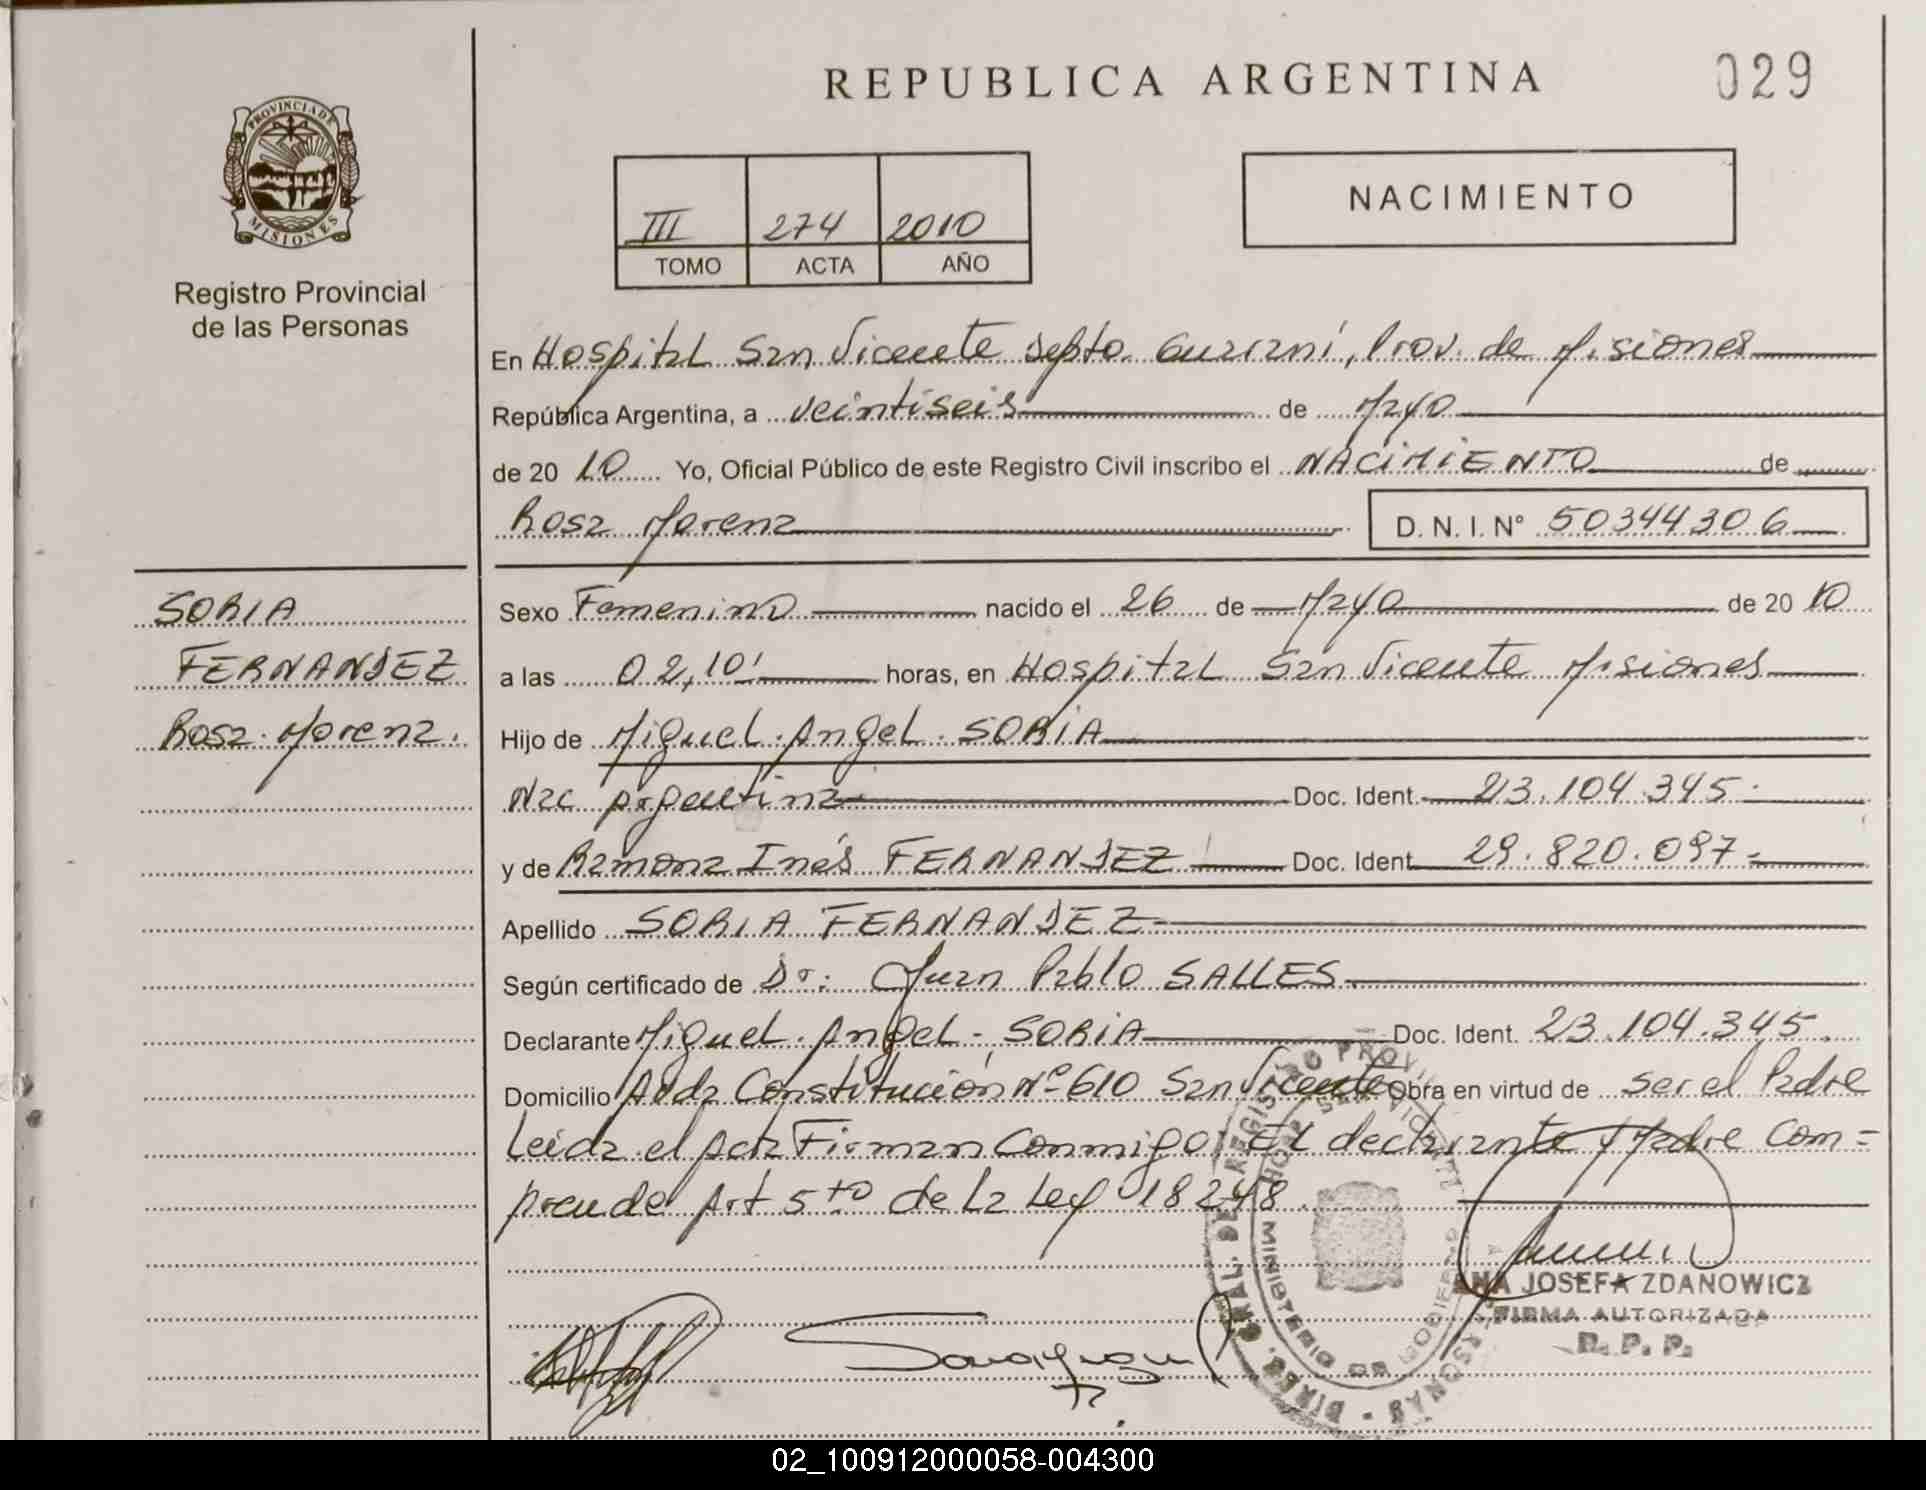 REPUBLICA ARGENTINA
029
PROVINCIA DE
MISIONES
Registro Provincial
de las Personas
III 274 2010
TOMO ACTA AÑO
NACIMIENTO
En Hospital San Vicente Depto. Guaraní, Prov. de Misiones
República Argentina, a veintiseis de Mayo
de 20 10 Yo, Oficial Público de este Registro Civil inscribo el NACIMIENTO de
Rosa Morena D.N.I. N° 50344306
SORIA
FERNANDEZ
Rosa Morena.
Sexo Femenino nacido el 26 de Mayo de 20 10
a las 02,10' horas, en Hospital San Vicente Misiones
Hijo de Miguel Angel SORIA
Nac Argentina Doc. Ident. 23.104.345
y de Ramona Inés FERNANDEZ Doc. Ident. 29.820.097
Apellido SORIA FERNANDEZ
Según certificado de Dr: Juan Pablo SALLES
Declarante Miguel Angel SORIA Doc. Ident. 23.104.345
Domicilio Avda Constitución Nº 610 San Vicente Obra en virtud de ser el Padre
Leída el Acta Firman Conmigo El declarante y Madre Com=
prende Art 5to de la Ley 18248.
ANA JOSEFA ZDANOWICZ
FIRMA AUTORIZADA
R. P. P.
MINISTERIO DE GOBIERNO
02_100912000058-004300